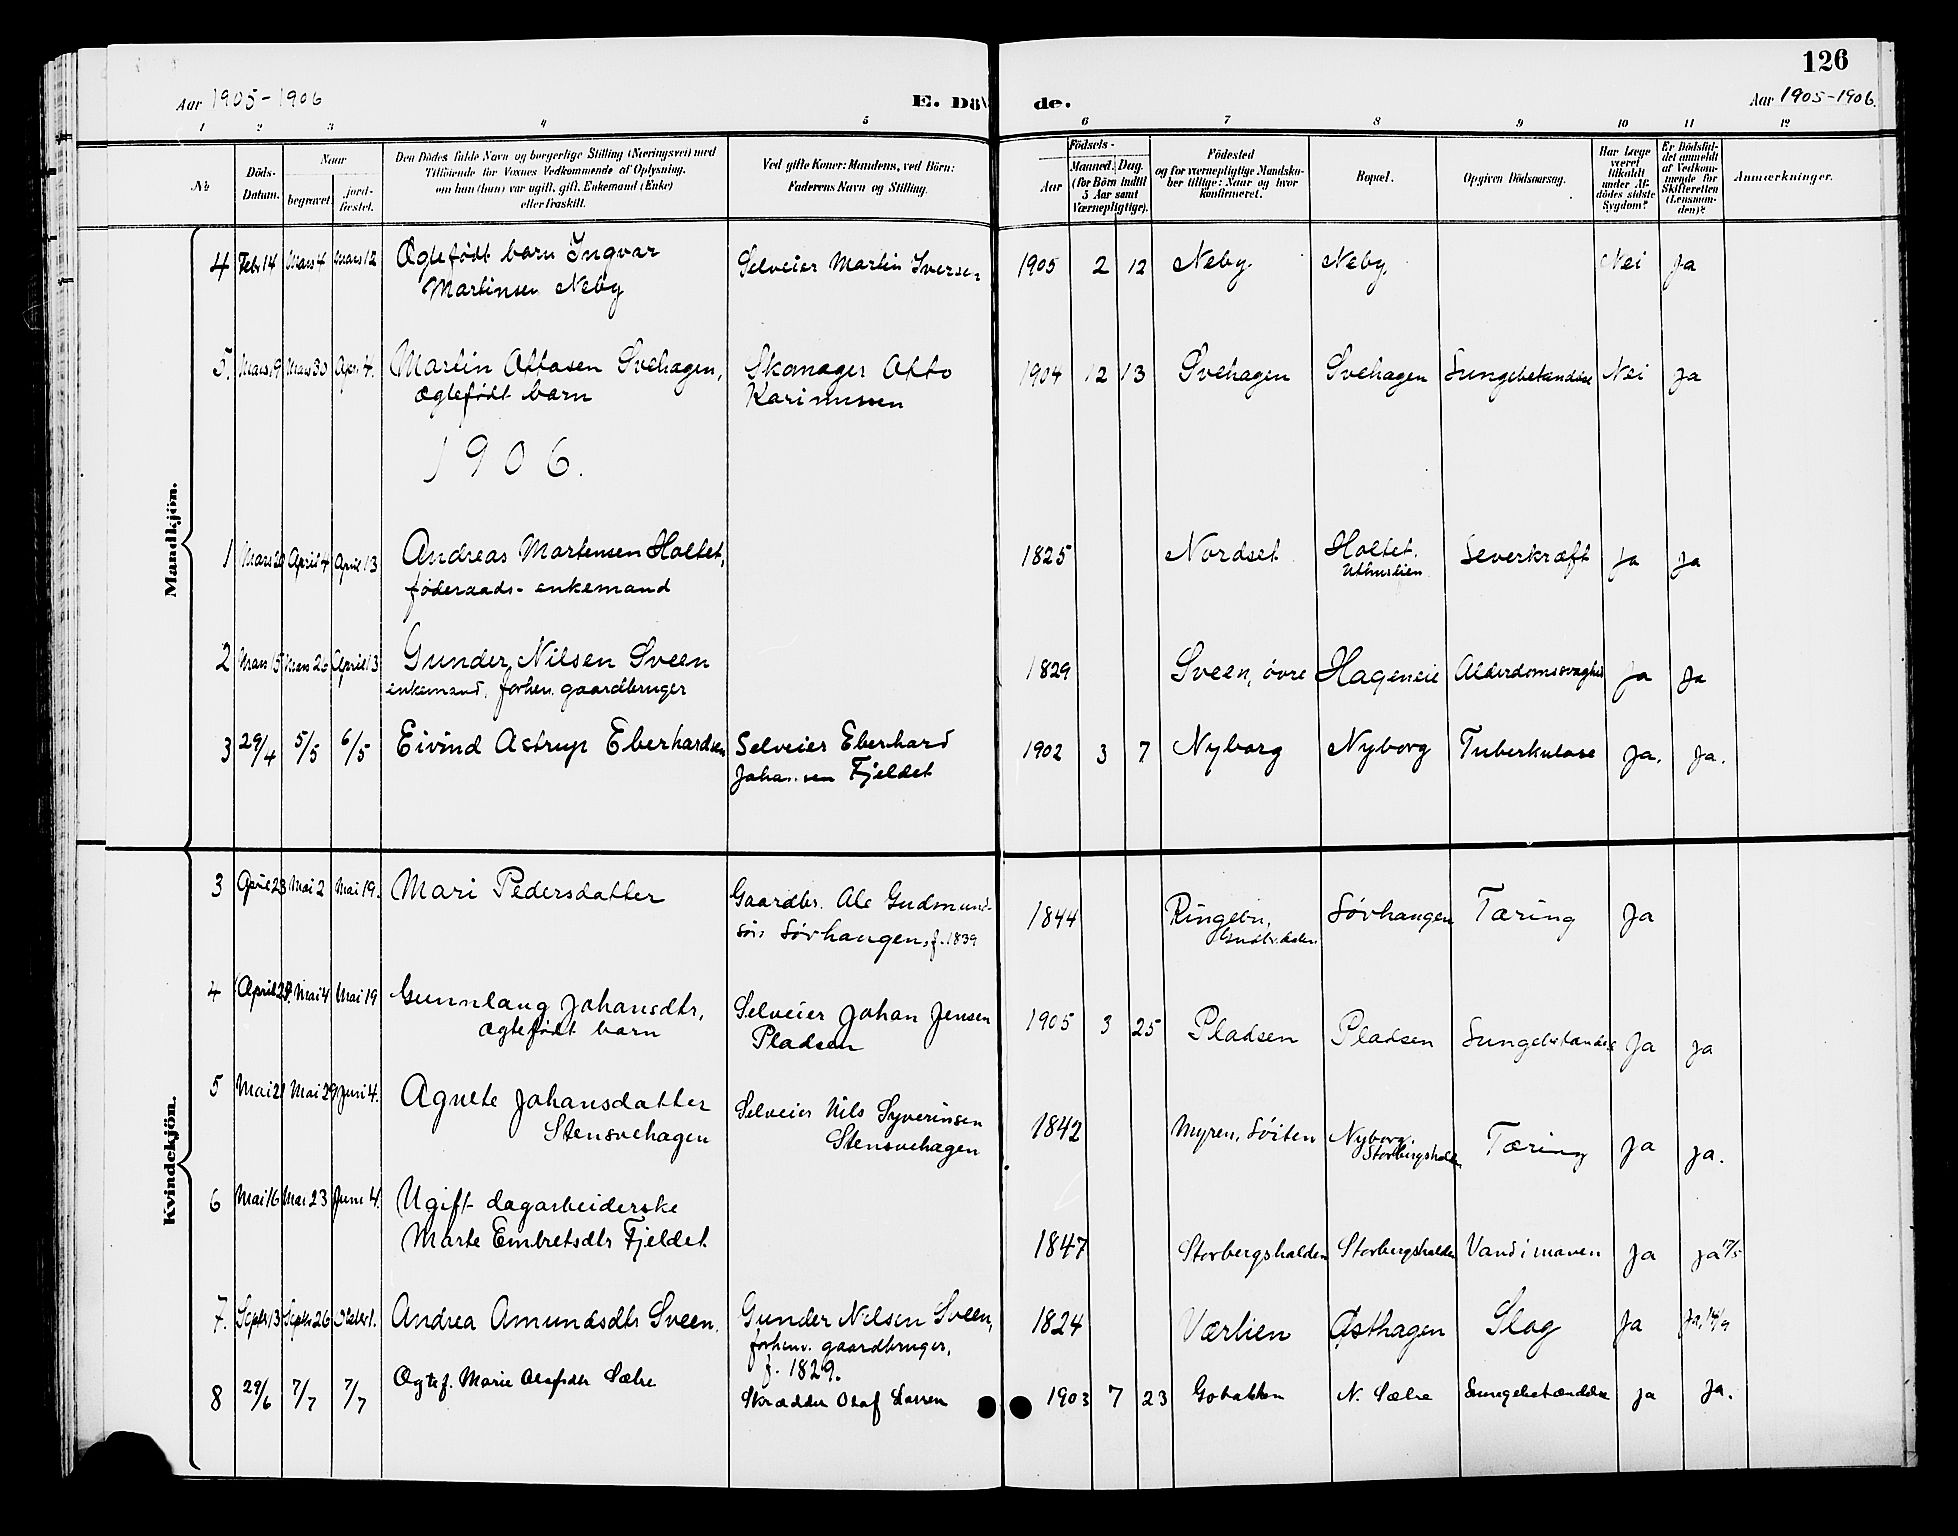 126
Aar 1905-1906
E. Dø
de.
Aar 1905-1906.
1 2 3 4 5 6 7 8 9 10 11 12
№
Döds-Datum.
Naar
begravet.
jord-fæstet.
Den Dödes fulde Navn og borgerlige Stilling (Næringsvei) med
Tilföiende for Voxnes Vedkommende af Oplysning,
om han (hun) var ugift, gift, Enkemand (Enke)
eller fraskilt.
Ved gifte Koner: Mandens, ved Börn:
Faderens Navn og Stilling.
Födsels-
Aar
Maaned. Dag.
(for Börn indtil
5 Aar samt
Værnepligtige).
Födested
og for værnepligtige Mandskaber tillige: Naar og hvor
konfirmeret.
Bopæl.
Opgiven Dödsaarsag.
Har Læge
været
tilkaldt
under Afdödes sidste
Sygdom?
Er Dödsfaldet anmeldt
af Vedkommende for
Skifteretten
(Lensmanden)?
Anmærkninger.
Mandkjön.
4 Febr 14 Mars 4 Mars 12 Ægtefødt barn Ingvar Selveier Martin Iversen 1905 2 12 Neby Neby Nei Ja
Martinsen Neby
5. Mars 19 Mars 30 Apr. 4. Martin Ottosen Svehagen, Skomager Otto 1904 12 13 Svehagen Svehagen Lungebetændelse Nei Ja
ægtefødt barn Karinussen
1906.
1 April 4 April 13 Andreas Mortensen Holtet, 1825 Nordset Holtet. Leverkræft Ja Ja
føderaads- enkemand
2 Mars 15 Mars 26 April 13 Gunder Nilsen Sveen 1829 Sveen, övre Hageneie Alderdomssvaghed Ja Ja
enkemand, forhen. gaardbruger
3 29/4 5/5 6/5 Eivind Astrup Eberhardsen Selveier Eberhard 1902 3 7 Nyborg Nyborg Tuberkulose Ja. Ja.
Johansen Fjeldet
Kvindekjön.
3 April 23 Mai 2 Mai 19. Mari Pedersdatter Gaardbr. Ole Gudmund- 1844 Ringebu, Sörhaugen Tæring Ja
Gudbr.dalen
sön Sörhaugen, f. 1839
4 Mai 4 Mai 19 Gunnlaug Johansdtr, Selveier Johan Jensen 1905 3 25 Pladsen Pladsen Lungebetændelse Ja Ja
ægtefødt barn Pladsen
5 Mai 21 Mai 29 Juni 4. Agnete Johansdatter Selveier Nils Syverinsen 1842 Myren, Söiten Nyborg, Tæring Ja Ja.
Storbergshalden
Stensvehagen Stensvehagen
6 Mai 16 Mai 23 Juni 4. Ugift dagarbeiderske
Marte Embretsdtr Fjeldet 1847 Storbergshalden Storbergshalden Vand i maven Ja Ja 17/5
7. Septbr 13 Septbr 26 Oktober 1. Andrea Amundsdtr Sveen. Gunder Nilsen Sveen, 1824 Værlien Østhagen Slag Ja Ja, 14/9
forhenv. gaardbruger,
f. 1829.
8 29/6 7/7 7/7 Ægtef. Marie Olafsdtr Sætre Skrædder Olaf Larsen 1903 7 23 N. Sætre Lungebetændelse Ja Ja.